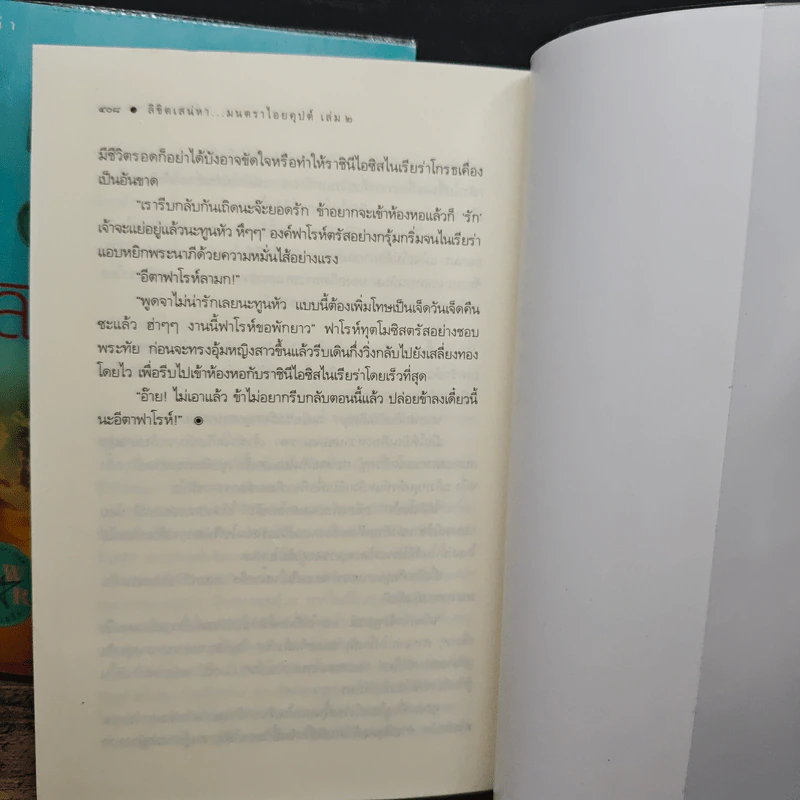 ๔๐๘ ● ลิขิตเสน่หา...มนตราไอยคุปต์ เล่ม ๒
มีชีวิตรอดก็อย่าได้บังอาจขัดใจหรือทำให้ราชินีไอซิสไนเรียร่าโกรธเคือง
เป็นอันขาด
“เรารีบกลับกันเถิดนะจ๊ะยอดรัก ข้าอยากจะเข้าห้องหอแล้วก็ ‘รัก’
เจ้าจะแย่อยู่แล้วนะทูนหัว หึๆๆ” องค์ฟาโรห์ตรัสอย่างกรุ้มกริ่มจนไนเรียร่า
แอบหยิกพระนาภีด้วยความหมั่นไส้อย่างแรง
“อีตาฟาโรห์ลามก!”
“พูดจาไม่น่ารักเลยนะทูนหัว แบบนี้ต้องเพิ่มโทษเป็นเจ็ดวันเจ็ดคืน
ซะแล้ว ฮ่าๆๆ งานนี้ฟาโรห์ขอพักยาว” ฟาโรห์ทุตโมซิสตรัสอย่างชอบ
พระทัย ก่อนจะทรงอุ้มหญิงสาวขึ้นแล้วรีบเดินกึ่งวิ่งกลับไปยังเสลี่ยงทอง
โดยไว เพื่อรีบไปเข้าห้องหอกับราชินีไอซิสไนเรียร่าโดยเร็วที่สุด
“อ๊าย! ไม่เอาแล้ว ข้าไม่อยากรีบกลับตอนนี้แล้ว ปล่อยข้าลงเดี๋ยวนี้
นะอีตาฟาโรห์!” ◉